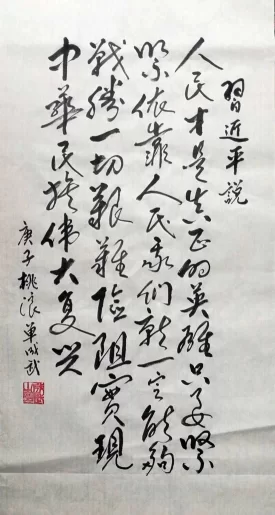 習近平説
人民才是真正的英雄只要緊
緊依靠人民我們就一定能夠
戰勝一切艱難險阻實現
中華民族偉大复兴
庚子桃浪單成武